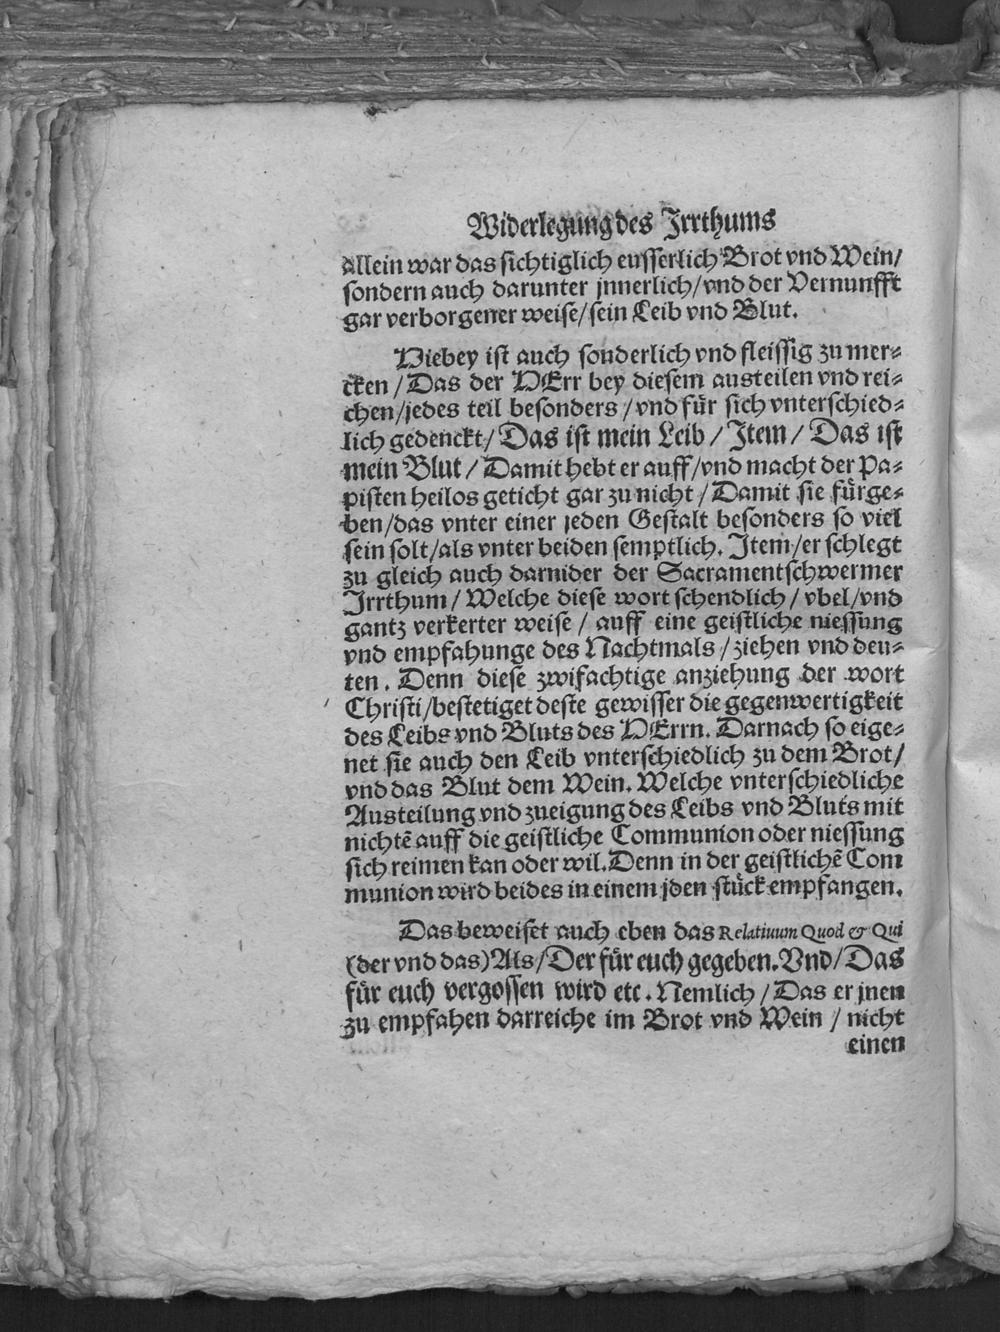 Widerlegung des Jrrthums
allein war das sichtiglich eusserlich Brot vnd Wein/
sondern auch darunter jnnerlich/vnd der Vernunfft
gar verborgener weise/sein Leib vnd Blut.
Hiebey ist auch sonderlich vnd fleissig zu mer-
cken/Das der HErr bey diesem austeilen vnd rei-
chen/jedes teil besonders/vnd für sich vnterschied-
lich gedenckt/Das ist mein Leib/Jtem/Das ist
mein Blut/Damit hebt er auff/vnd macht der Pa-
pisten heilos geticht gar zu nicht/Damit sie fürge-
ben/das vnter einer jeden Gestalt besonders so viel
sein solt/als vnter beiden semptlich. Jtem/er schlegt
zu gleich auch darnider der Sacramentschwermer
Jrrthum/Welche diese wort schendlich/vbel/vnd
gantz verkerter weise/auff eine geistliche niessung
vnd empfahunge des Nachtmals/ziehen vnd deu-
ten. Denn diese zwifachtige anziehung der wort
Christi/bestetiget deste gewisser die gegenwertigkeit
des Leibs vnd Bluts des HErrn. Darnach so eige-
net sie auch den Leib vnterschiedlich zu dem Brot/
vnd das Blut dem Wein. Welche vnterschiedliche
Austeilung vnd zueigung des Leibs vnd Bluts mit
nichtē auff die geistliche Communion oder niessung
sich reimen kan oder wil. Denn in der geistlichē Com
munion wird beides in einem jden stück empfangen.
Das beweiset auch eben das Relatiuum Quod & Qui
(der vnd das) Als/Der für euch gegeben. Vnd/Das
für euch vergossen wird etc. Nemlich/Das er jnen
zu empfahen darreiche im Brot vnd Wein/nicht
einen